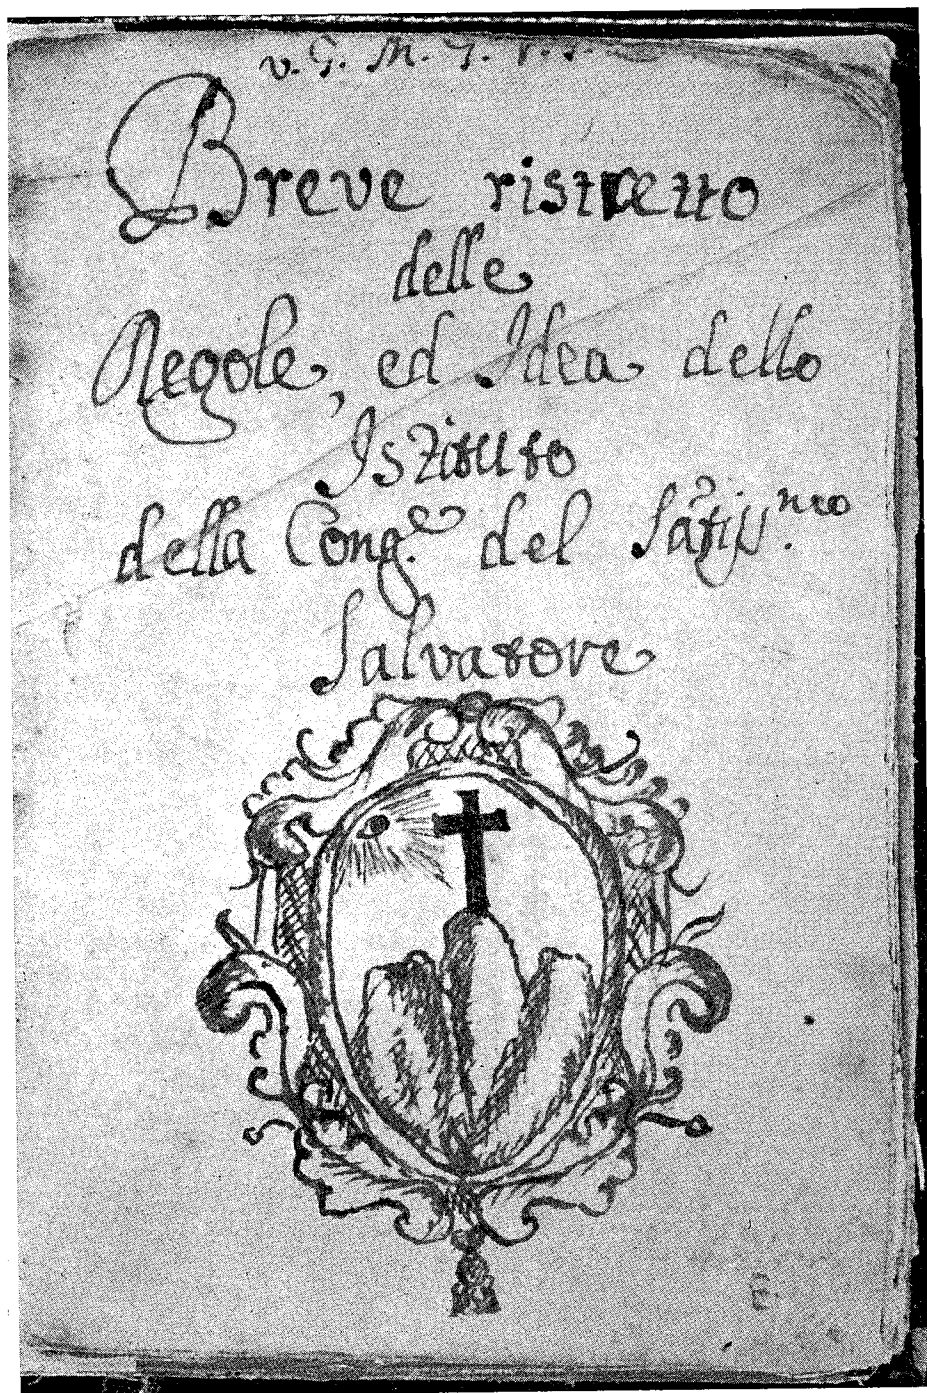 v. G. M. G.
Breve ristretto
delle
Regole, ed Idea dello
Istituto
della Cong.e del
Salvatore